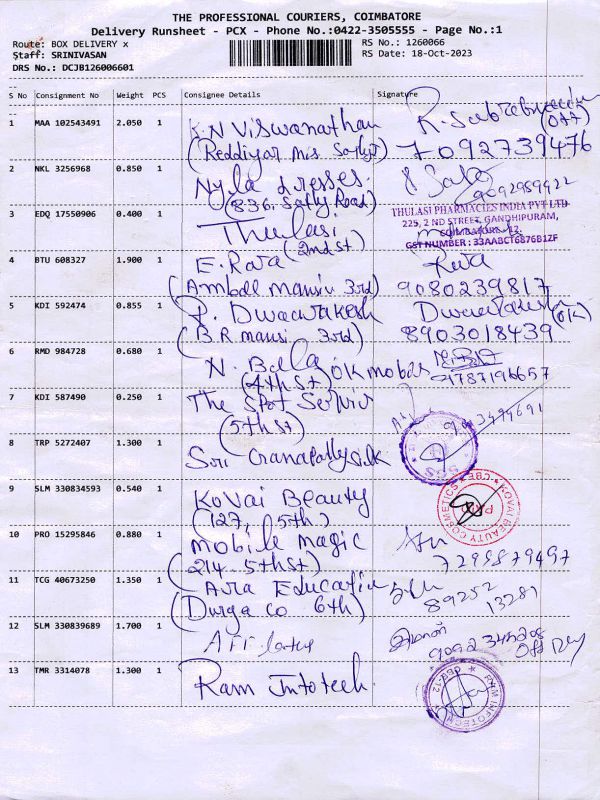 THE PROFESSIONAL COURIERS, COIMBATORE
Delivery Runsheet - PCX - Phone No.:0422-3505555 - Page No.:1
Route: BOX DELIVERY x RS No.: 1260066
Staff: SRINIVASAN RS Date: 18-Oct-2023
DRS No.: DCJB126006601
S No Consignment No Weight PCS Consignee Details Signature
1 MAA 102543491 2.050 1 K.N Viswanathan
(Reddiyar 7092739476
2 NKL 3256968 0.850 1 Nyla dresses. 9092959922
(836, Road)
3 EDQ 17550906 0.400 1 Thulasi
(2nd st)
THULASI PHARMACIES INDIA PVT LTD
225, 2 ND STREET, GANDHIPURAM,
COIMBATORE-12.
GST NUMBER : 33AABCT6876B1ZF
4 BTU 608327 1.900 1 E. Raja
3rd) 9080239817
5 KDI 592474 0.855 1 P. Dwaarakesh
(B R 3rd) 8903018439 (OK)
6 RMD 984728 0.680 1 N. Balla
(4th st) OK 9787196657
7 KDI 587490 0.250 1 The Spot Servis
(5th st)
8 TRP 5272407 1.300 1 Sri silk
SGS
9 SLM 330834593 0.540 1 Kovai Beauty
(127, 5th)
KOVAI BEAUTY COSMETICS CBE
10 PRO 15295846 0.880 1 Mobile Magic
(214 5th st) 7295879497
11 TCG 40673250 1.350 1 Education
(Durga Co 6th) 89252
13281
12 SLM 330839689 1.700 1
13 TMR 3314078 1.300 1 Ram Infotech
INFOTECH CBE-12